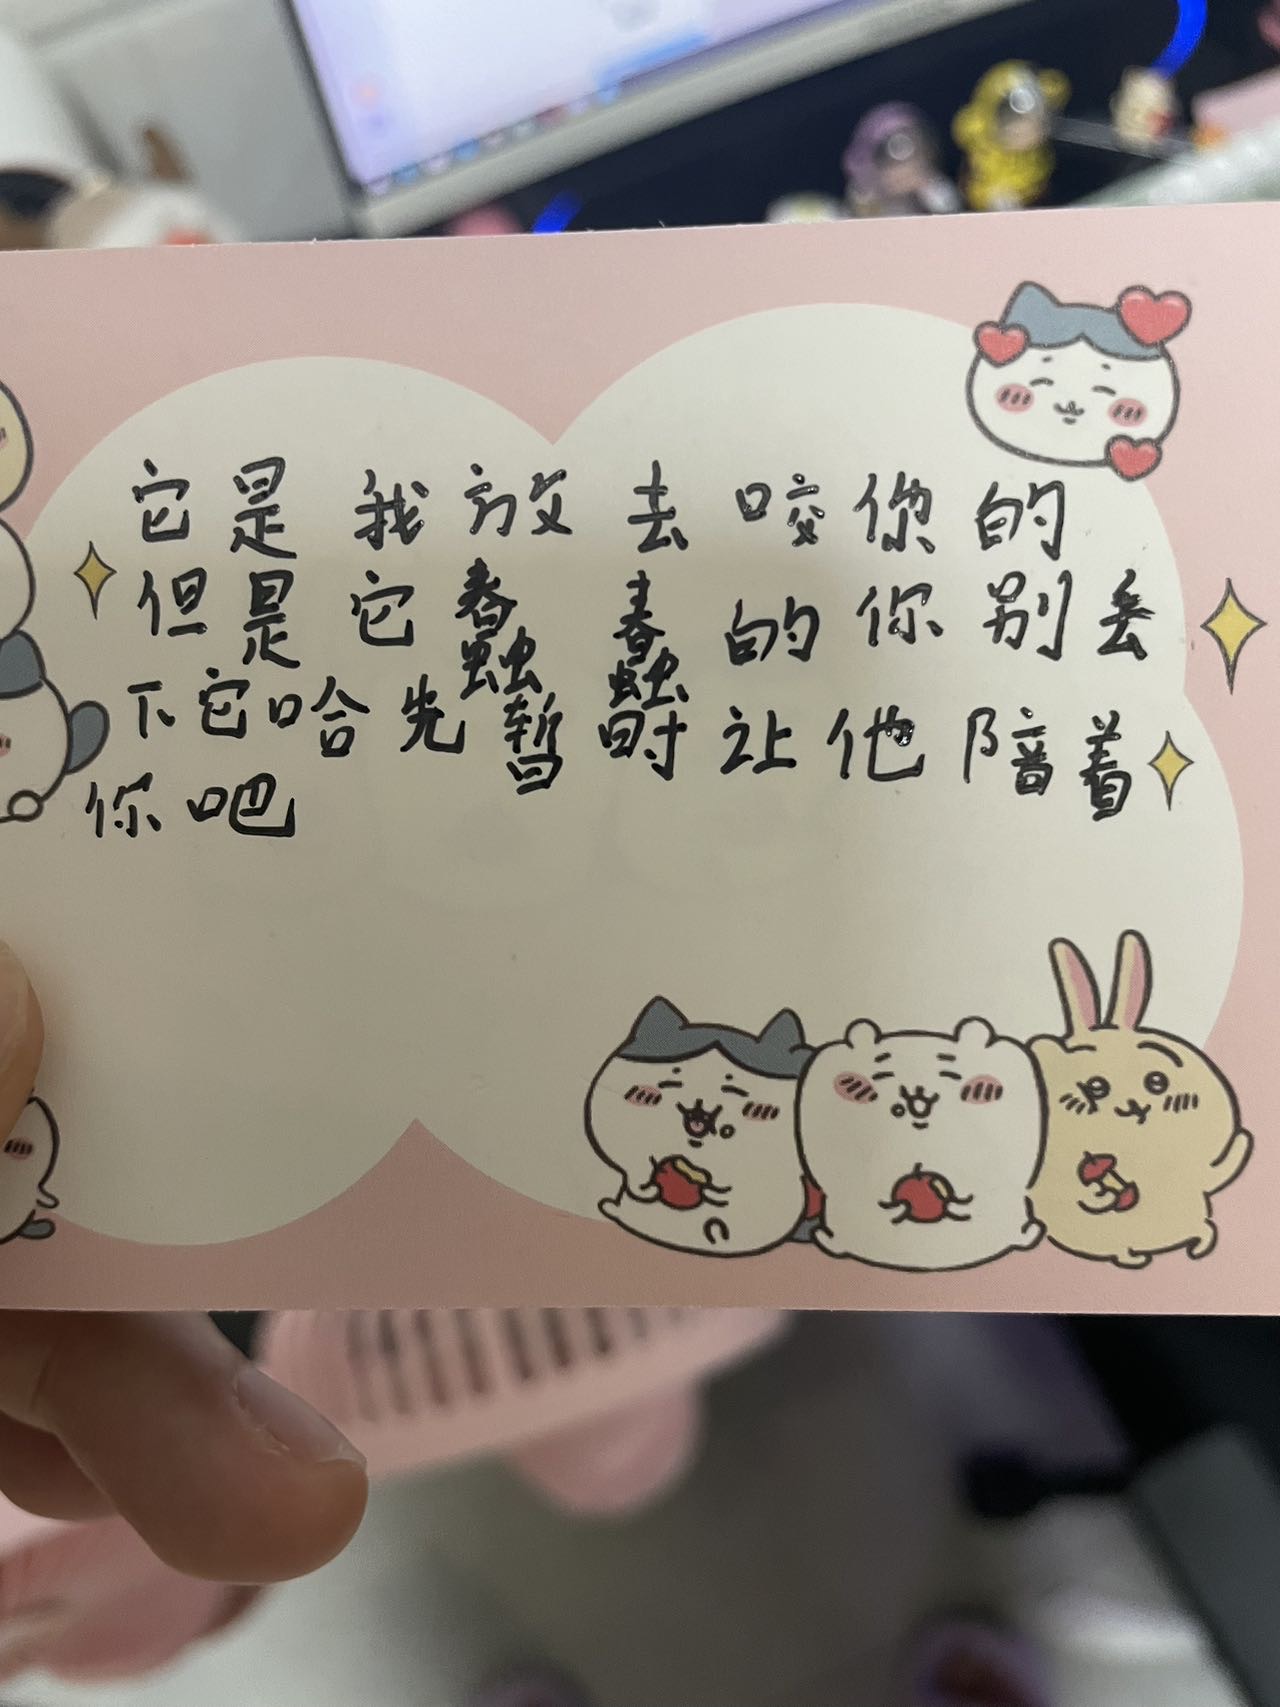 它是我放去咬你的
但是它蠢蠢的你别丢
下它哈先暂时让他陪着
你吧